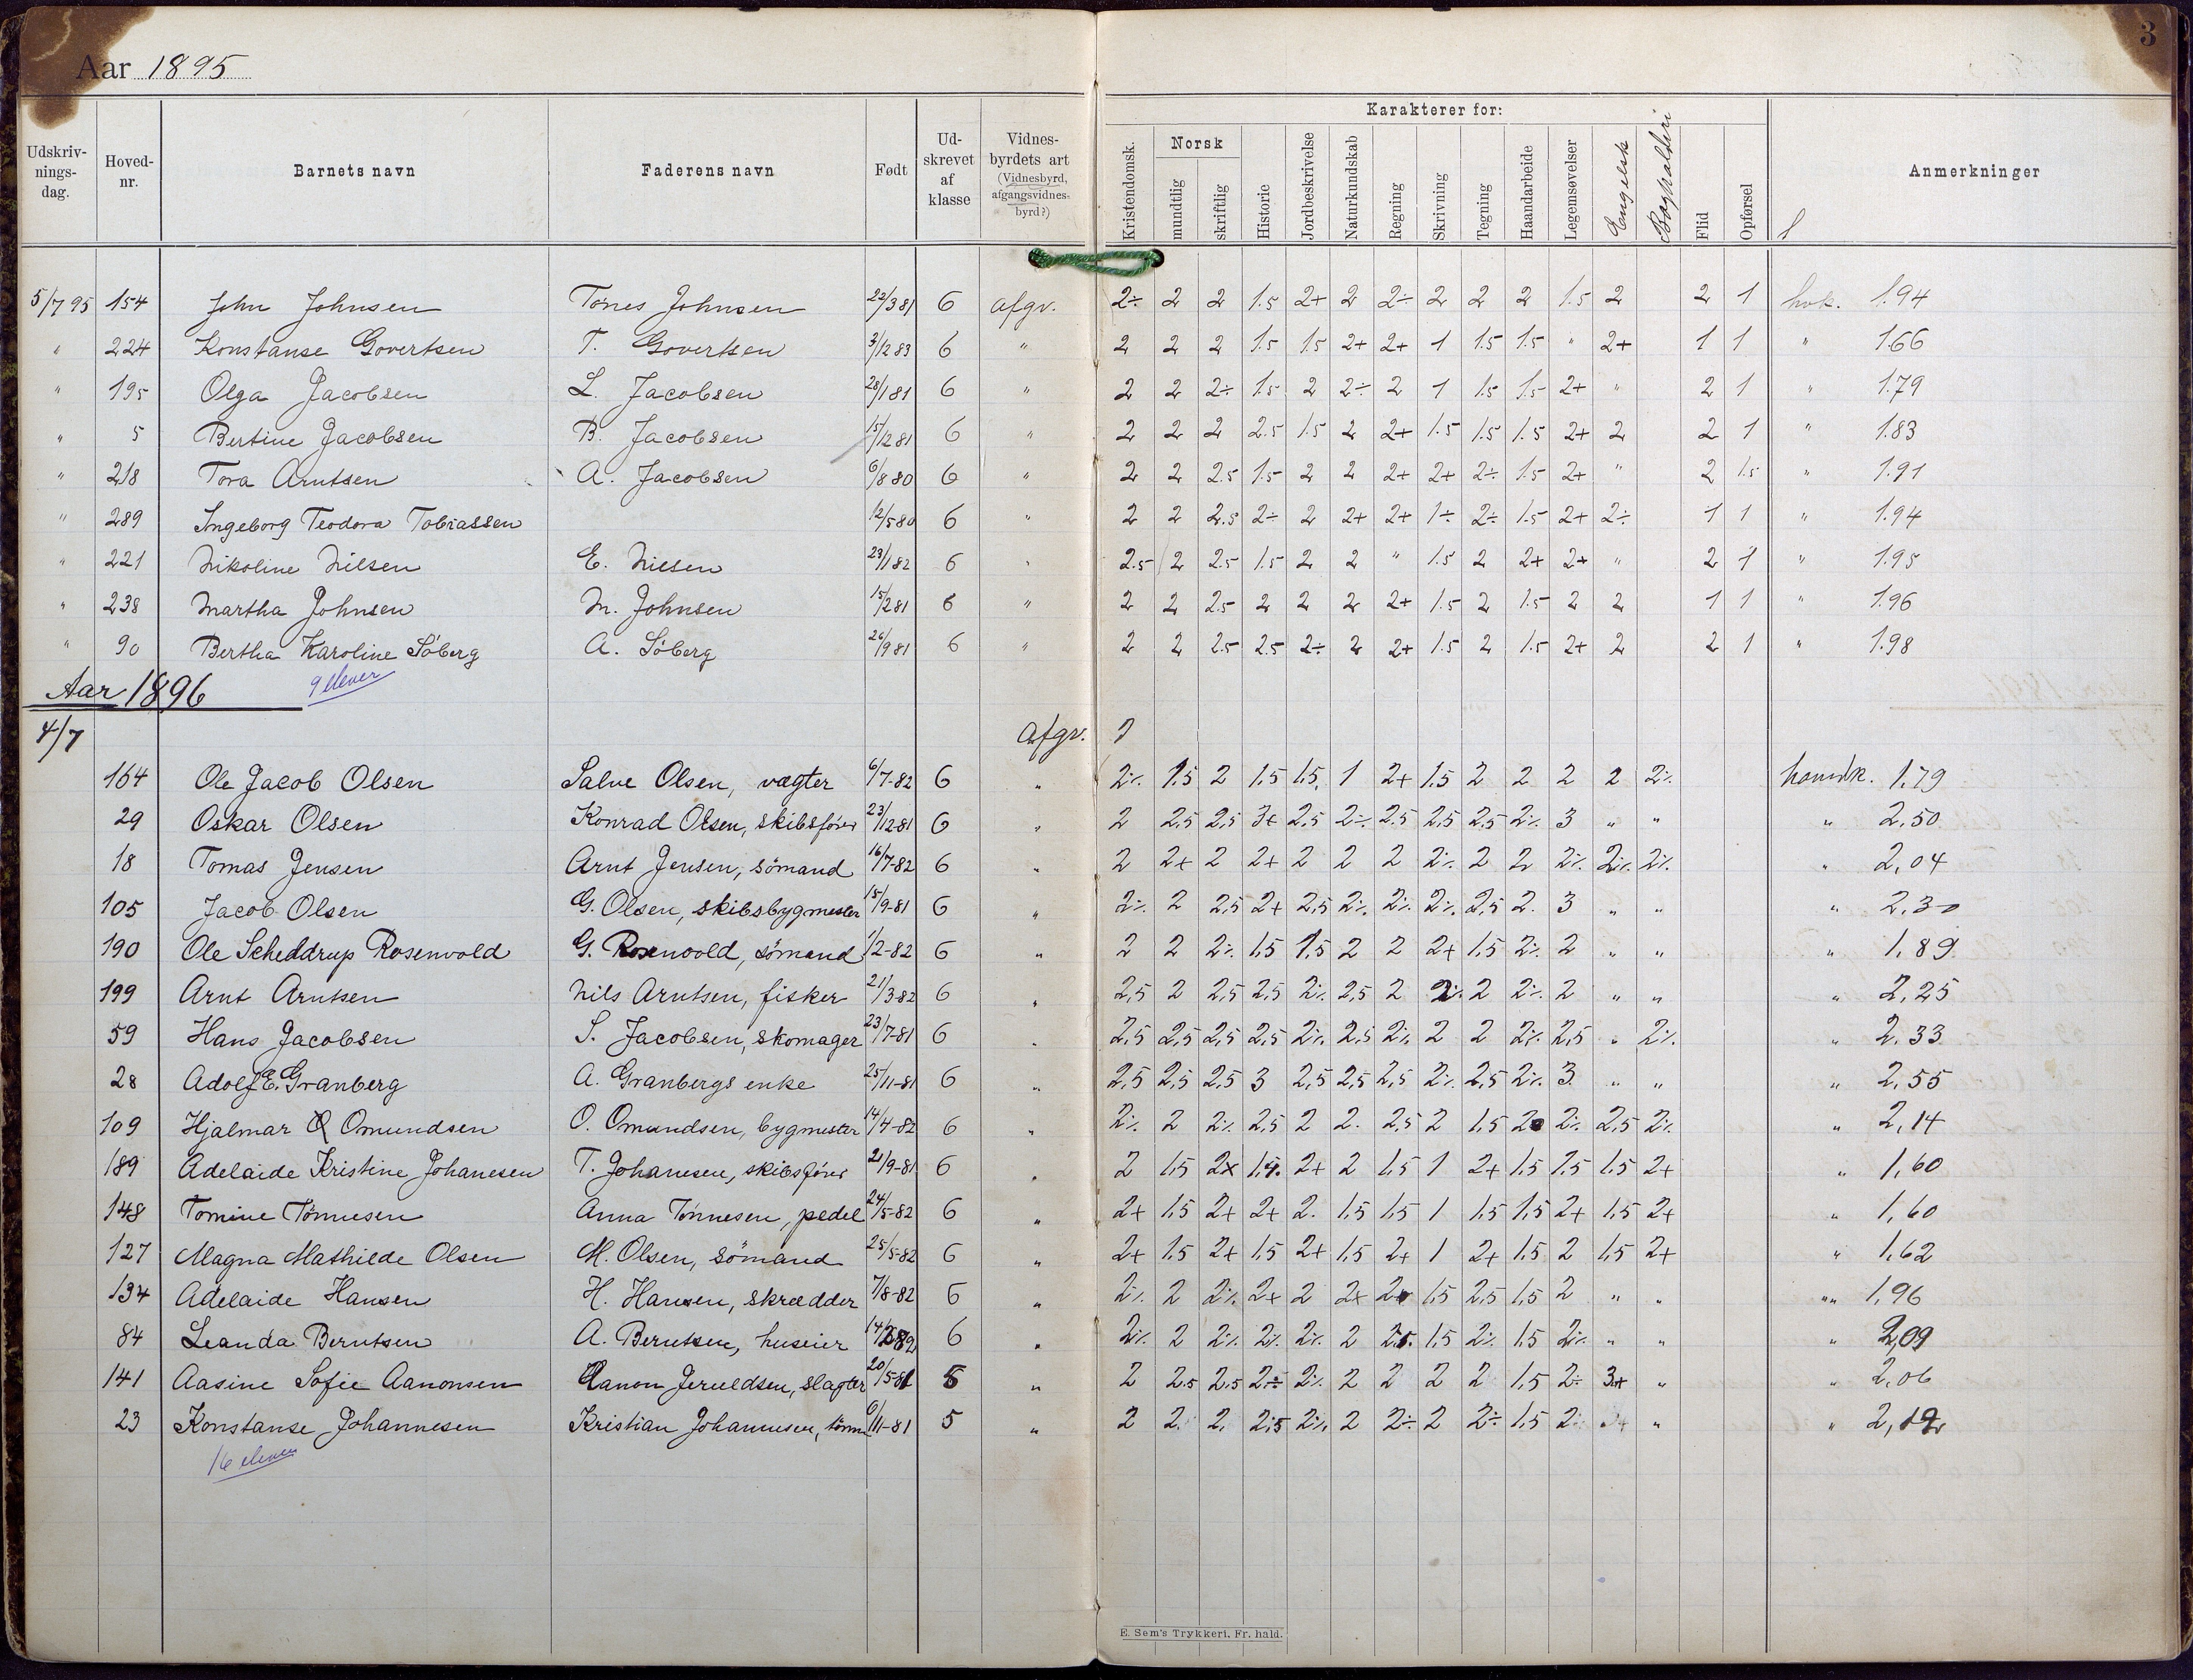 3
Aar 1895
Karakterer for:
Udskrivningsdag. Hovednr. Barnets navn Faderens navn Født Udskrevet af klasse Vidnesbyrdets art (Vidnesbyrd, afgangsvidnesbyrd?) Kristendomsk. Norsk mundtlig skriftlig Historie Jordbeskrivelse Naturkundskab Regning Skrivning Tegning Haandarbeide Legemsøvelser Engelsk Flid Opførsel Anmerkninger
5/7 95 154 John Johnsen Tønes Johnsen 22/3 81 6 afgv. 2÷ 2 2 1.5 2+ 2 2÷ 2 2 2 1.5 2 2 1 hvk. 1.94
" 224 Konstanse Govertsen T. Govertsen 3/12 83 6 " 2 2 2 1.5 1.5 2+ 2+ 1 1.5 1.5 " 2+ 1 1 " 1.66
" 195 Olga Jacobsen L. Jacobsen 28/1 81 6 " 2 2 2÷ 1.5 2 2÷ 2 1 1.5 1.5 2+ " 2 1 " 1.79
" 5 Bertine Jacobsen B. Jacobsen 15/12 81 6 " 2 2 2 2.5 1.5 2 2+ 1.5 1.5 1.5 2+ 2 2 1 " 1.83
" 218 Tora Arntsen A. Jacobsen 6/8 80 6 " 2 2 2.5 1.5 2 2 2+ 2+ 2÷ 1.5 2+ " 2 1.5 " 1.91
" 289 Ingeborg Teodora Tobiassen 12/5 80 6 " 2 2 2.5 2÷ 2 2+ 2+ 1÷ 2÷ 1.5 2+ 2÷ 1 1 " 1.94
" 221 Nikoline Nilsen E. Nilsen 23/1 82 6 " 2.5 2 2.5 1.5 2 2 " 1.5 2 2+ 2+ " 2 1 " 1.95
" 238 Martha Johnsen M. Johnsen 15/2 81 6 " 2 2 2.5 2 2 2 2+ 1.5 2 1.5 2 2 1 1 " 1.96
" 90 Bertha Karoline Söberg A. Söberg 26/9 81 6 " 2 2 2.5 2.5 2÷ 2 2+ 1.5 2 1.5 2+ 2 2 1 " 1.98
Aar 1896 9 elever
4/7 Afgv.
164 Ole Jacob Olsen Salve Olsen, vægter 6/7-82 6 " 2÷ 1.5 2 1,5 1,5, 1 2+ 1,5 2 2 2 2 2÷ hovedk. 1,79
29 Oskar Olsen Konrad Olsen, skibsfører 23/12-81 6 " 2 2,5 2,5 3+ 2,5 2÷ 2.5 2,5 2,5 2÷ 3 " " " 2,50
18 Tomas Jensen Arnt Jensen, sömand 16/7-82 6 " 2 2+ 2 2+ 2 2 2 2÷ 2 2 2÷ 2÷ 2÷ " 2,04
105 Jacob Olsen G. Olsen, skibsbygmester 15/9-81 6 " 2÷ 2 2,5 2+ 2,5 2÷ 2÷ 2÷ 2,5 2. 3 " " " 2,30
190 Ole Scheddrup Rosenvold G. Rosenvold, sömand 1/2-82 6 " 2 2 2÷ 1,5 1,5 2 2 2+ 1,5 2÷ 2 " " " 1,89
199 Arnt Arntsen Nils Arntsen, fisker 21/3-82 6 " 2,5 2 2,5 2,5 2÷ 2,5 2 2÷ 2 2÷ 2 " " " 2,25
59 Hans Jacobsen S. Jacobsen, skomager 23/7-81 6 " 2,5 2,5 2,5 2,5 2÷ 2,5 2÷ 2 2 2÷ 2,5 " 2÷ " 2,33
28 Adolf E. Granberg A. Granbergs enke 25/11-81 6 " 2,5 2,5 2,5 3 2,5 2,5 2,5 2÷ 2,5 2÷ 3 " " " 2,55
109 Hjalmar O Omundsen O. Omundsen, bygmester 14/4-82 6 " 2÷ 2 2÷ 2,5 2 2. 2,5 2 1,5 2 2÷ 2,5 2÷ " 2,14
189 Adelaide Kristine Johanesen T. Johanesen, skibsfører 21/9-81 6 " 2 1,5 2+ 1,5 2+ 2 1,5 1 2+ 1,5 1,5 1,5 2+ " 1,60
148 Tomine Tönnesen Anna Tönnesen, pedel 24/5-82 6 " 2+ 1,5 2+ 2+ 2. 1,5 1,5 1 1,5 1,5 2+ 1,5 2+ " 1,60
127 Magna Mathilde Olsen M. Olsen, sömand 25/5-82 6 " 2+ 1,5 2+ 1,5 2+ 1,5 2+ 1 2+ 1,5 2 1,5 2+ " 1,62
134 Adelaide Hansen H. Hansen, skrædder 7/8-82 6 " 2÷ 2 2÷ 2+ 2 2+ 2+ 1,5 2,5 1,5 2 " " " 1,96
84 Leanda Berntsen A. Berntsen, huseier 6 " 2÷ 2 2÷ 2÷ 2÷ 2 2,5 1,5 2÷ 1,5 2÷ " " " 2,09
141 Aasine Sofie Aanonsen Aanon Jereldsen, slagter 20/5-81 5 " 2 2.5 2.5 2÷ 2÷ 2 2 2 2 1,5 2÷ 3+ " " 2,06
23 Konstanse Johannesen Kristian Johannesen, tömm 6/11-81 5 " 2 2. 2. 2,5 2÷ 2 2÷ 2 2÷ 1,5 2÷ " "
16 elever
E. Sem's Trykkeri. Fr. hald.